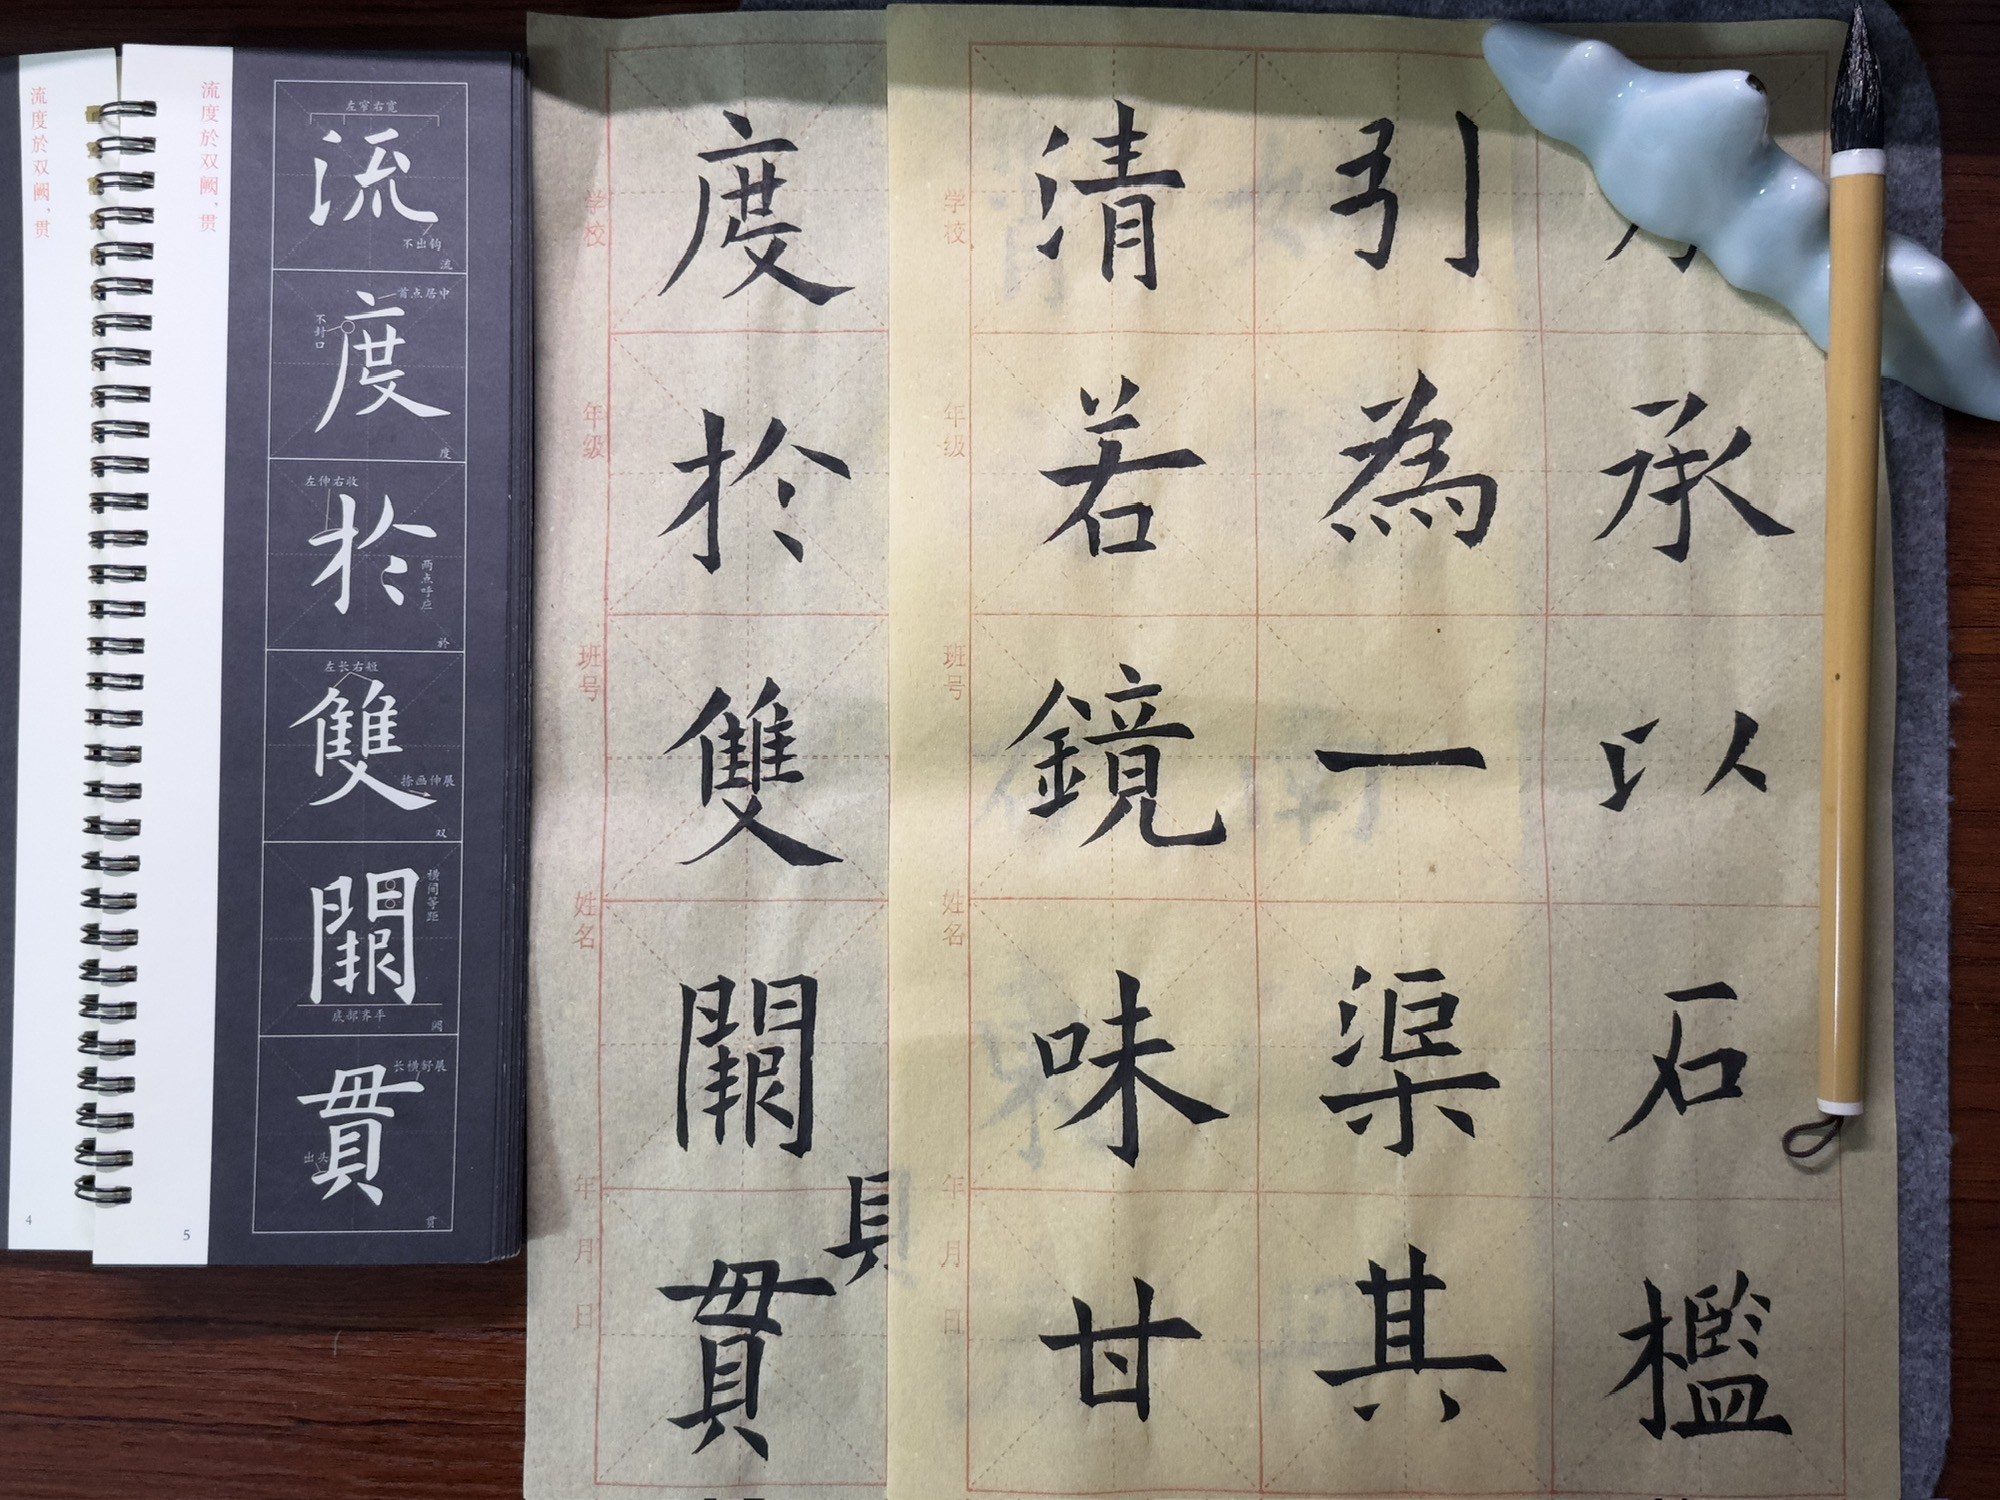 流度於双阙，贯
4
流度於双阙，贯
左窄右宽
流
不出钩
流
首点居中
不封口
度
度
左伸右收
於
两点呼应
於
左长右短
雙
捺画伸展
双
闕
横间等距
底部齐平
阙
长横舒展
貫
出头
贯
5
学校
年级
班号
姓名
年月日
度於雙闕貫
具
学校
年级
班号
姓名
年月日
承以石檻
引為一渠其
清若鏡味甘